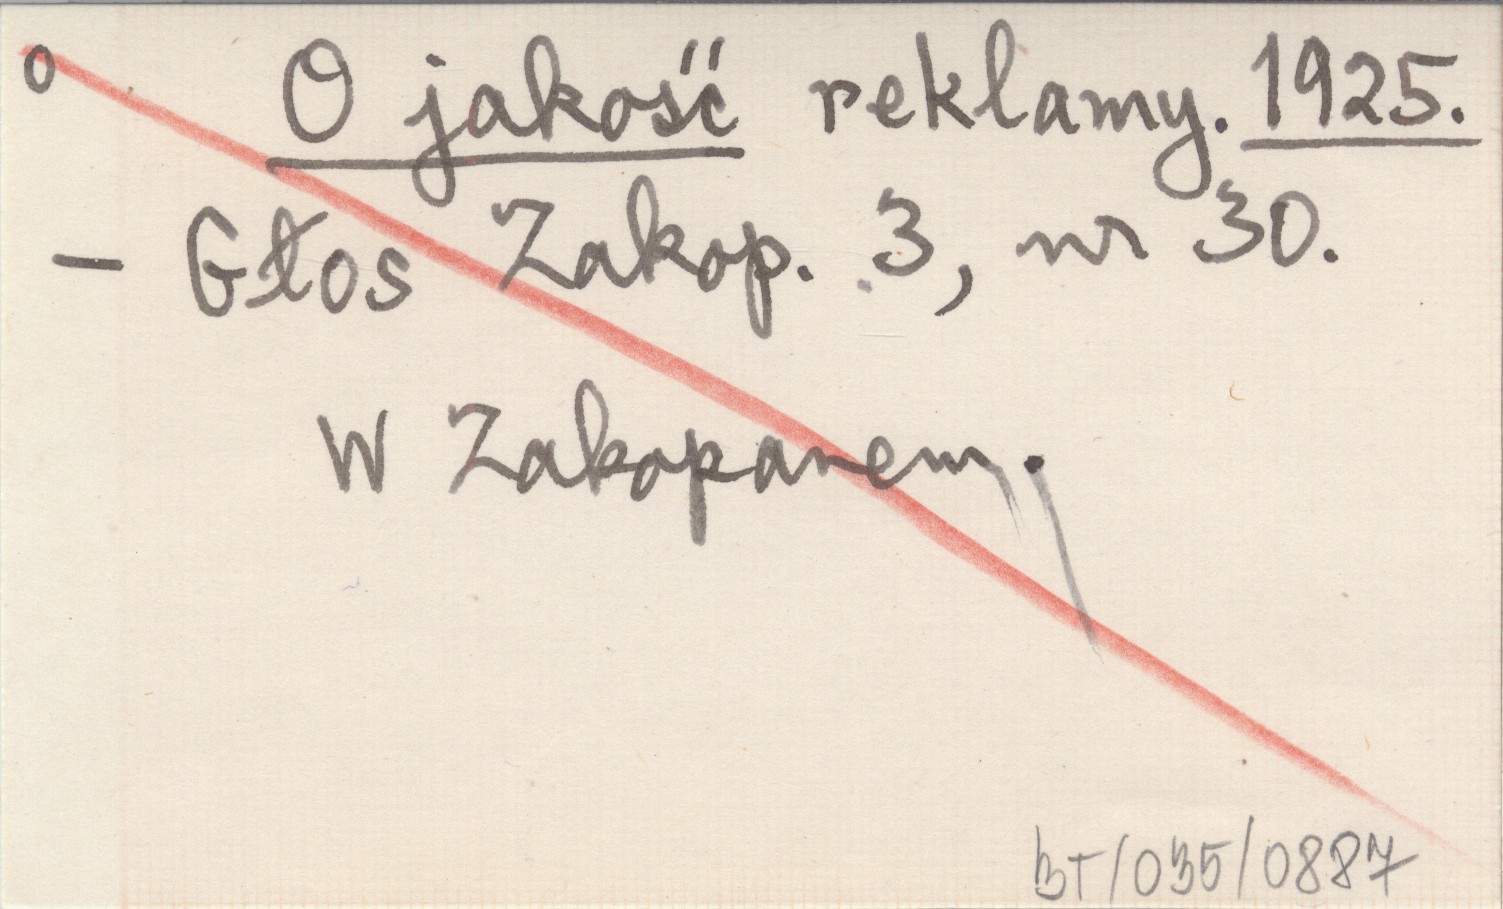 o O jakość reklamy. 1925.
– Głos Zakop. 3, nr 30.
W Zakopanem.
BT/035/0887